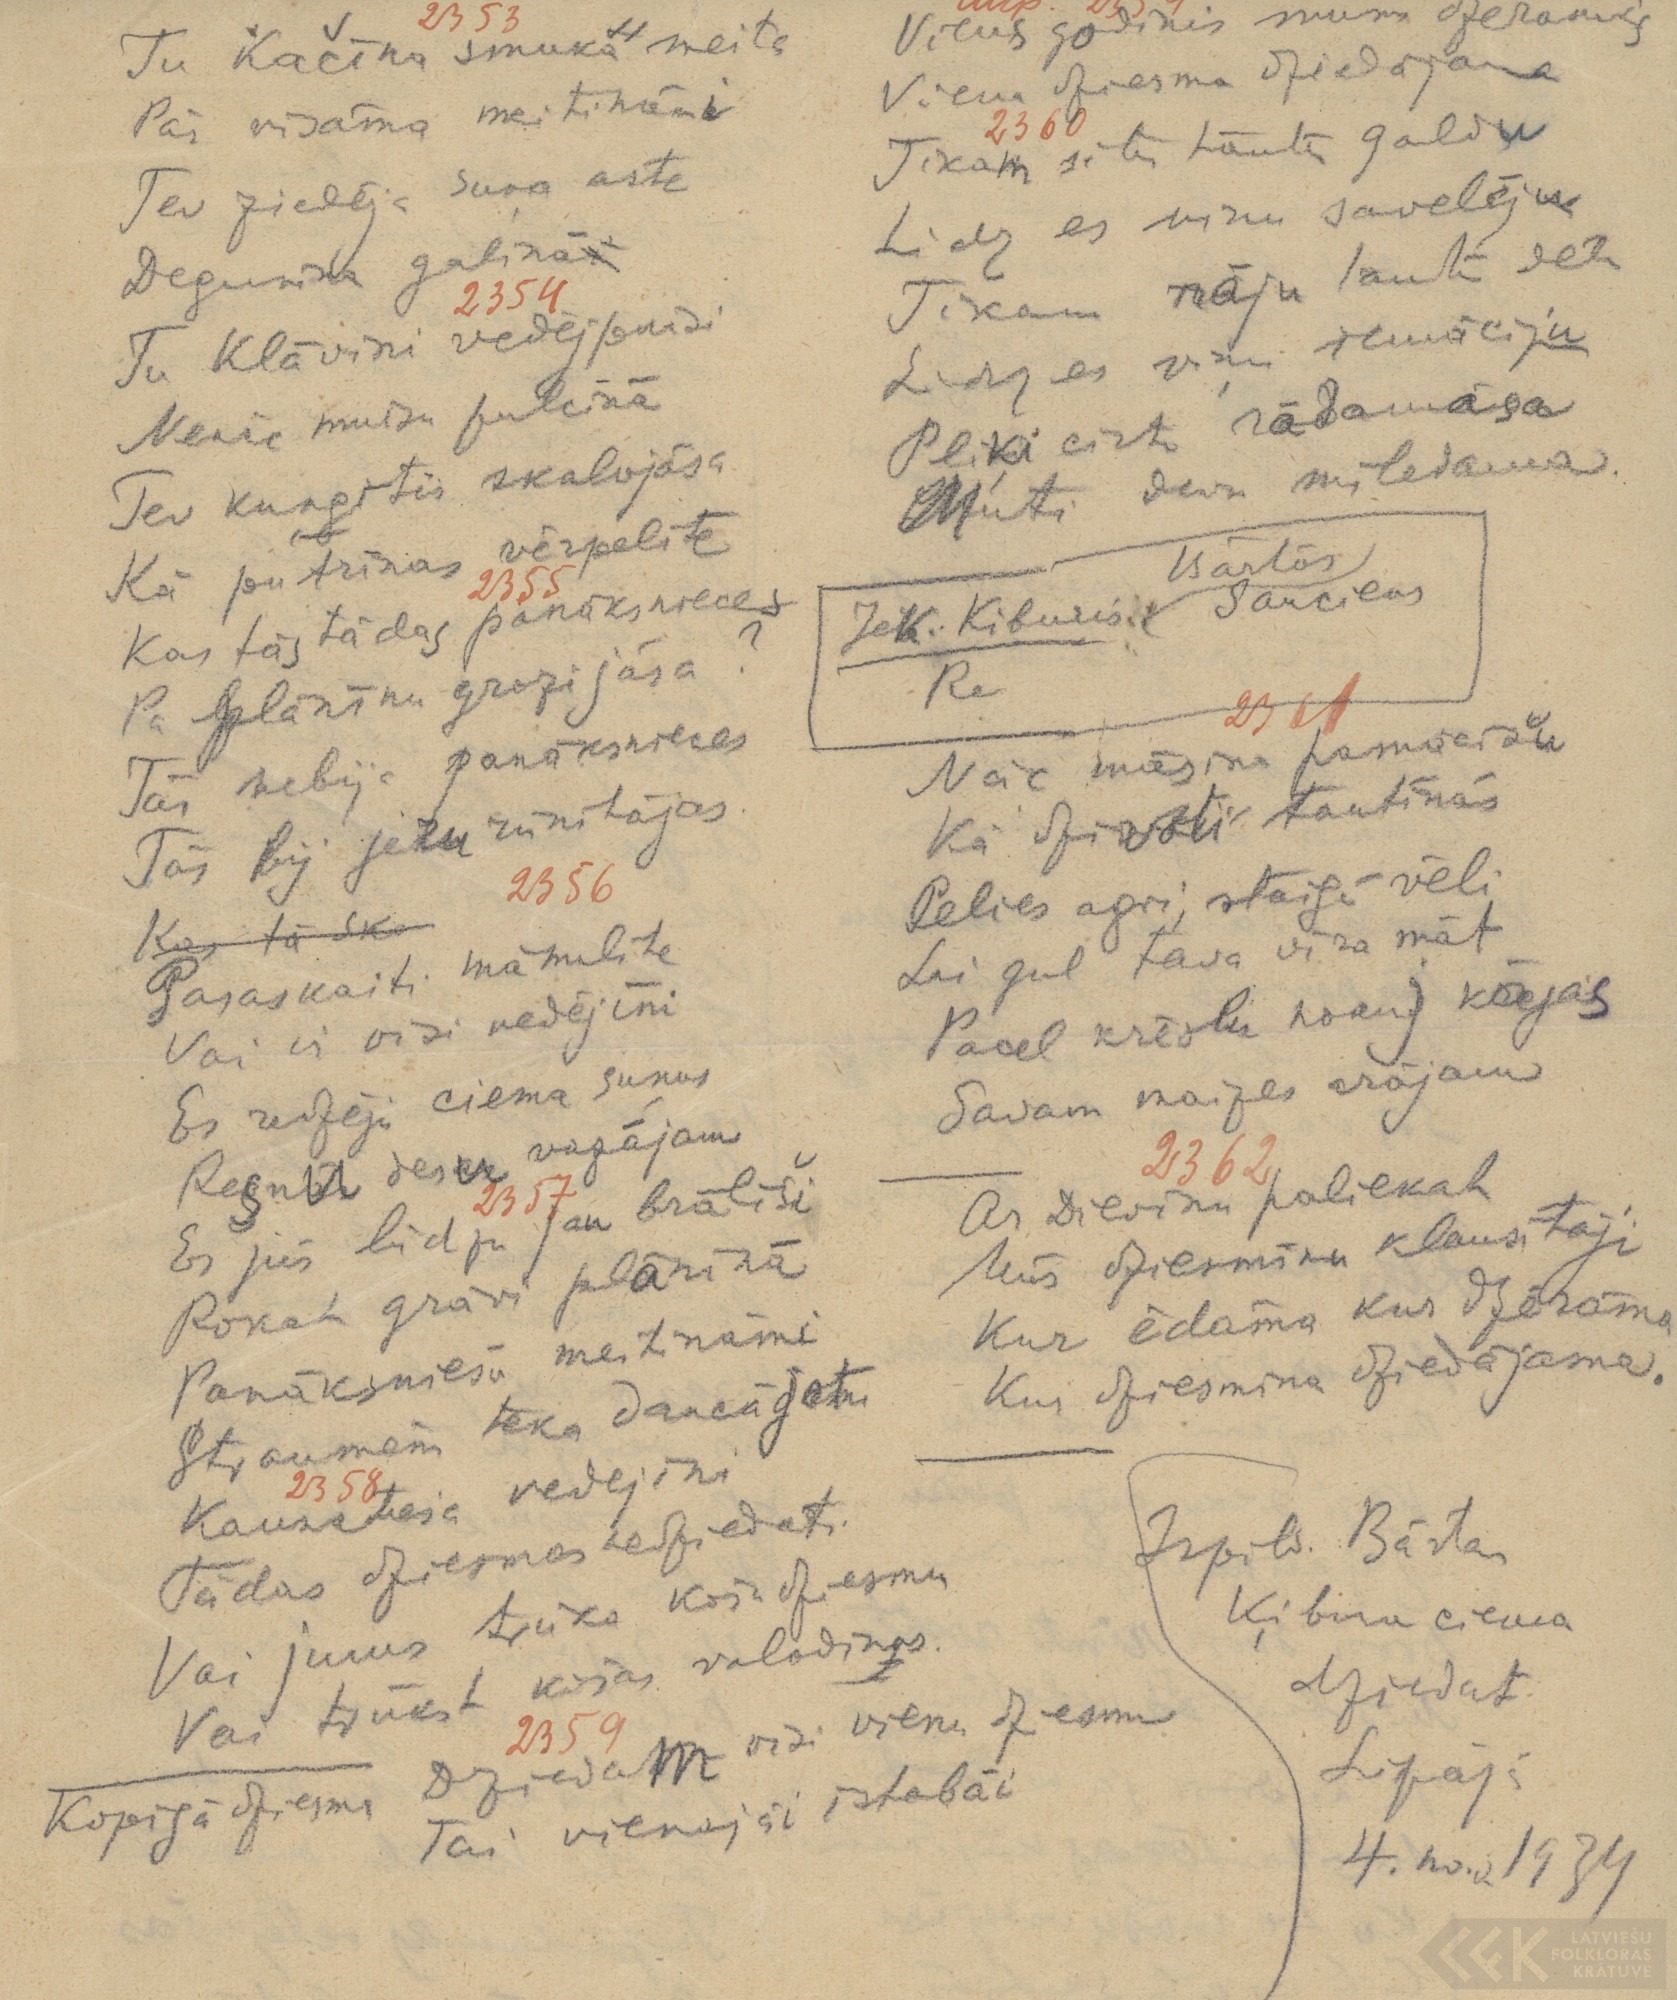 2353
Tu Kačīna smukā meita
Pār visāma meitināmi
Tev ziedēja suņa aste
Deguniņa galiņā
2354
Tu Klāviņi vedējpuisi
Nenāc muižu pulciņā
Tev kungītis skalojāsa
Kā putriņas vērpelīte
2355
Kas tās tādas panāksnieces
Pa plāniņu grozijāsa?
Tās nebija panāksnieces
Tās bij jēru rūnītājas
2356
Kas tā
Pasaskaiti māmulite
Vai ir visi vedējiņi
Es redzēju ciema suņus
desu vazājam
2357
Es jūs lūdzu jau brāliši
Rokat grāvi plāniņā
Panāksniešu meitināmi
Straumēm teka dancājotu
2358
vedejiņi
Tādas dziesmas nedziedati
Vai jums trūka košu dziesmu
Vai trūkst košas valodiņas.
2359
Kopigā dziesma
Dziedam visi vienu dziesmu
Tai vienajāi istabāi
Vienas godiņis mums dzeramis
Viena dziesma dziedājama
2360
Tikam situ tautu galdu
Lidz es viņu savelēju
Tikam māju tautu dēlu
Lidz es viņu iemāciju
Pliķi cirtu rādamāsa
Muti devu mīlēdama.
Bārtās
Jēk. Ķiburis Sauciens
Re
2361
Nāc māsiņa pamācišu
Kā dzīvoti tautiņās
Celies agri, staigā vēli
Lai guļ tava vīra māt
Pacel krēslu noauj kājas
Savam maizes arājam
2362
Ar Dieviņu paliekat
Mūs dziesmiņu klausitāji
Kur ēdama kur dzērāma
Kur dziesmiņa dziedājama.
Izpild. Bārtas
Ķiburu ciema
dziedat.
Liepājā
4. nov. 1934
LATVIEŠU
FOLKLORAS
KRĀTUVE